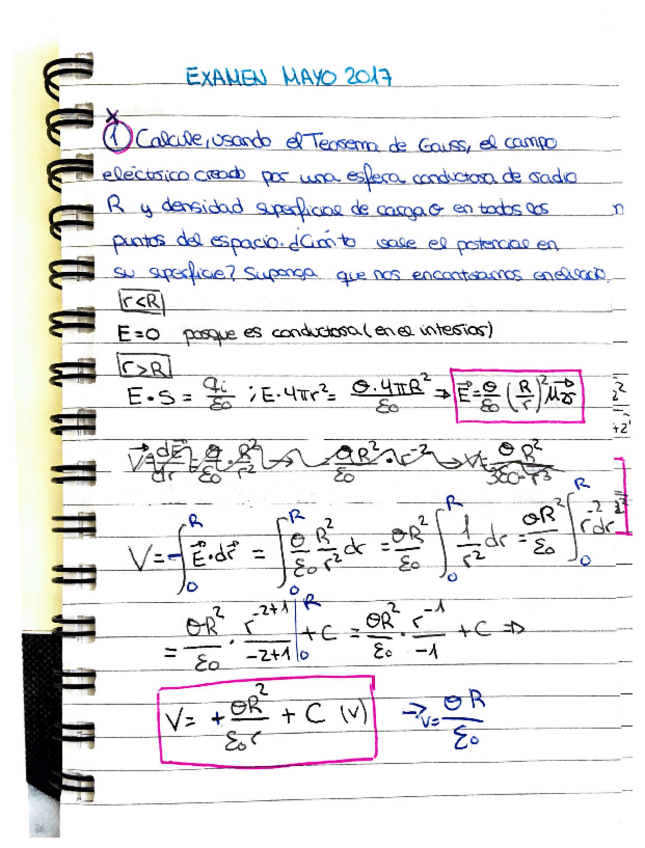 EXAMEN MAYO 2017
① Calcule, usando el Teorema de Gauss, el campo
eléctrico creado por una esfera conductora de radio
R y densidad superficial de carga σ en todos los
puntos del espacio. ¿Cuánto vale el potencial en
su superficie? Suponga que nos encontramos en el vacío.
r<R
E=0 porque es conductora (en el interior)
r>R
E·S = qi/ε0 ; E·4πr² = σ·4πR²/ε0 ⇒ E⃗ = σ/ε0 (R/r)² μ⃗r
V = -∫₀ᴿ E⃗·dr⃗ = ∫₀ᴿ σ/ε0 R²/r² dr = σR²/ε0 ∫₀ᴿ 1/r² dr = σR²/ε0 ∫₀ᴿ r⁻² dr
= σR²/ε0 · r⁻²⁺¹/-2+1 |₀ᴿ + C = σR²/ε0 · r⁻¹/-1 + C ⇒
V = + σR²/ε0r + C (V) → V = σR/ε0